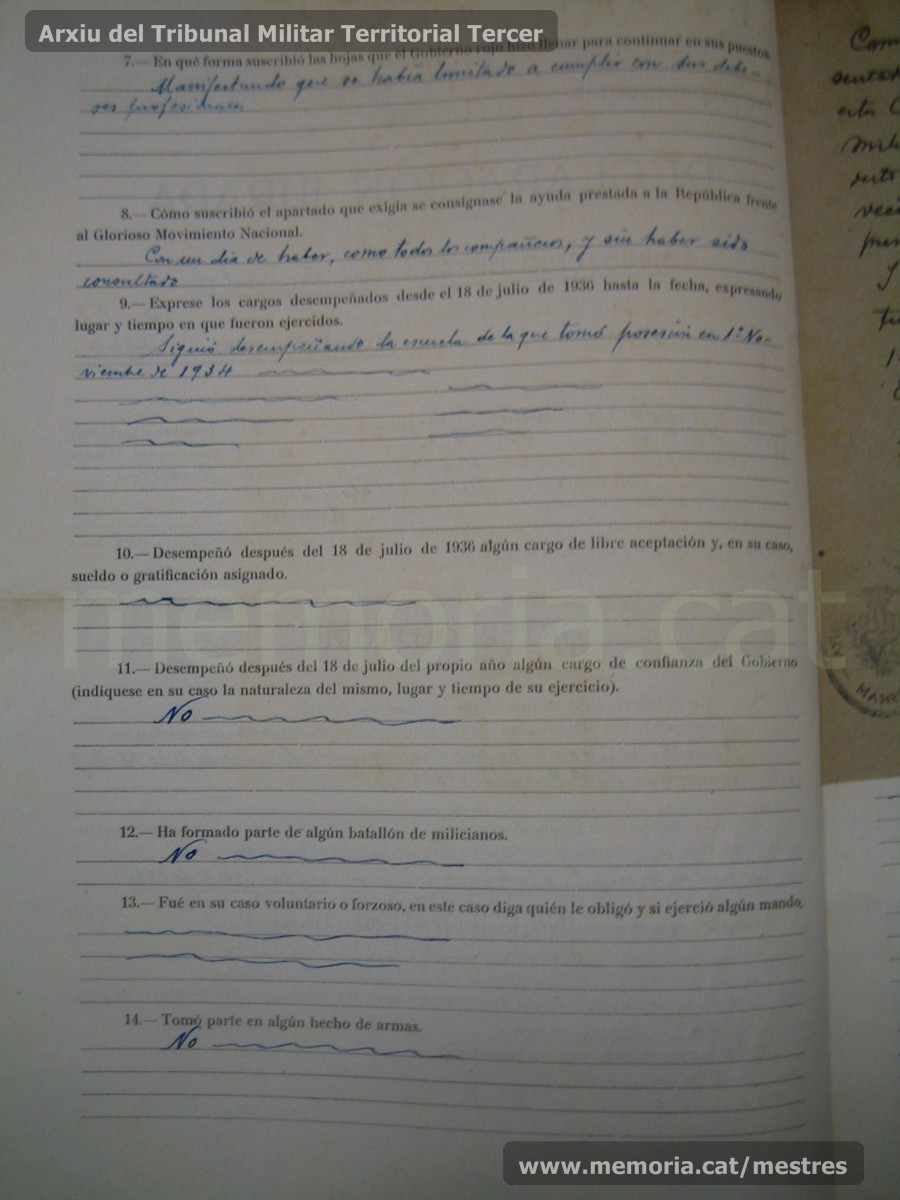 Arxiu del Tribunal Militar Territorial Tercer
7.— En qué forma suscribió las hojas que el Gobierno rojo hizo llenar para continuar en sus puestos.
Manifestando que se había limitado a cumplir con sus debe-
res profesionales
8.— Cómo suscribió el apartado que exigía se consignase la ayuda prestada a la República frente
al Glorioso Movimiento Nacional.
Con un día de haber, como todos los compañeros, y sin haber sido
consultado
9.— Exprese los cargos desempeñados desde el 18 de julio de 1936 hasta la fecha, expresando
lugar y tiempo en que fueron ejercidos.
Siguió desempeñando la escuela de la que tomó posesión en 1º No-
viembre de 1934
10.— Desempeñó después del 18 de julio de 1936 algún cargo de libre aceptación y, en su caso,
sueldo o gratificación asignado.
memoria.cat
11.— Desempeñó después del 18 de julio del propio año algún cargo de confianza del Gobierno
(indíquese en su caso la naturaleza del mismo, lugar y tiempo de su ejercicio).
No
12.— Ha formado parte de algún batallón de milicianos.
No
13.— Fué en su caso voluntario o forzoso, en este caso diga quién le obligó y si ejerció algún mando.
14.— Tomó parte en algún hecho de armas.
No
www.memoria.cat/mestres